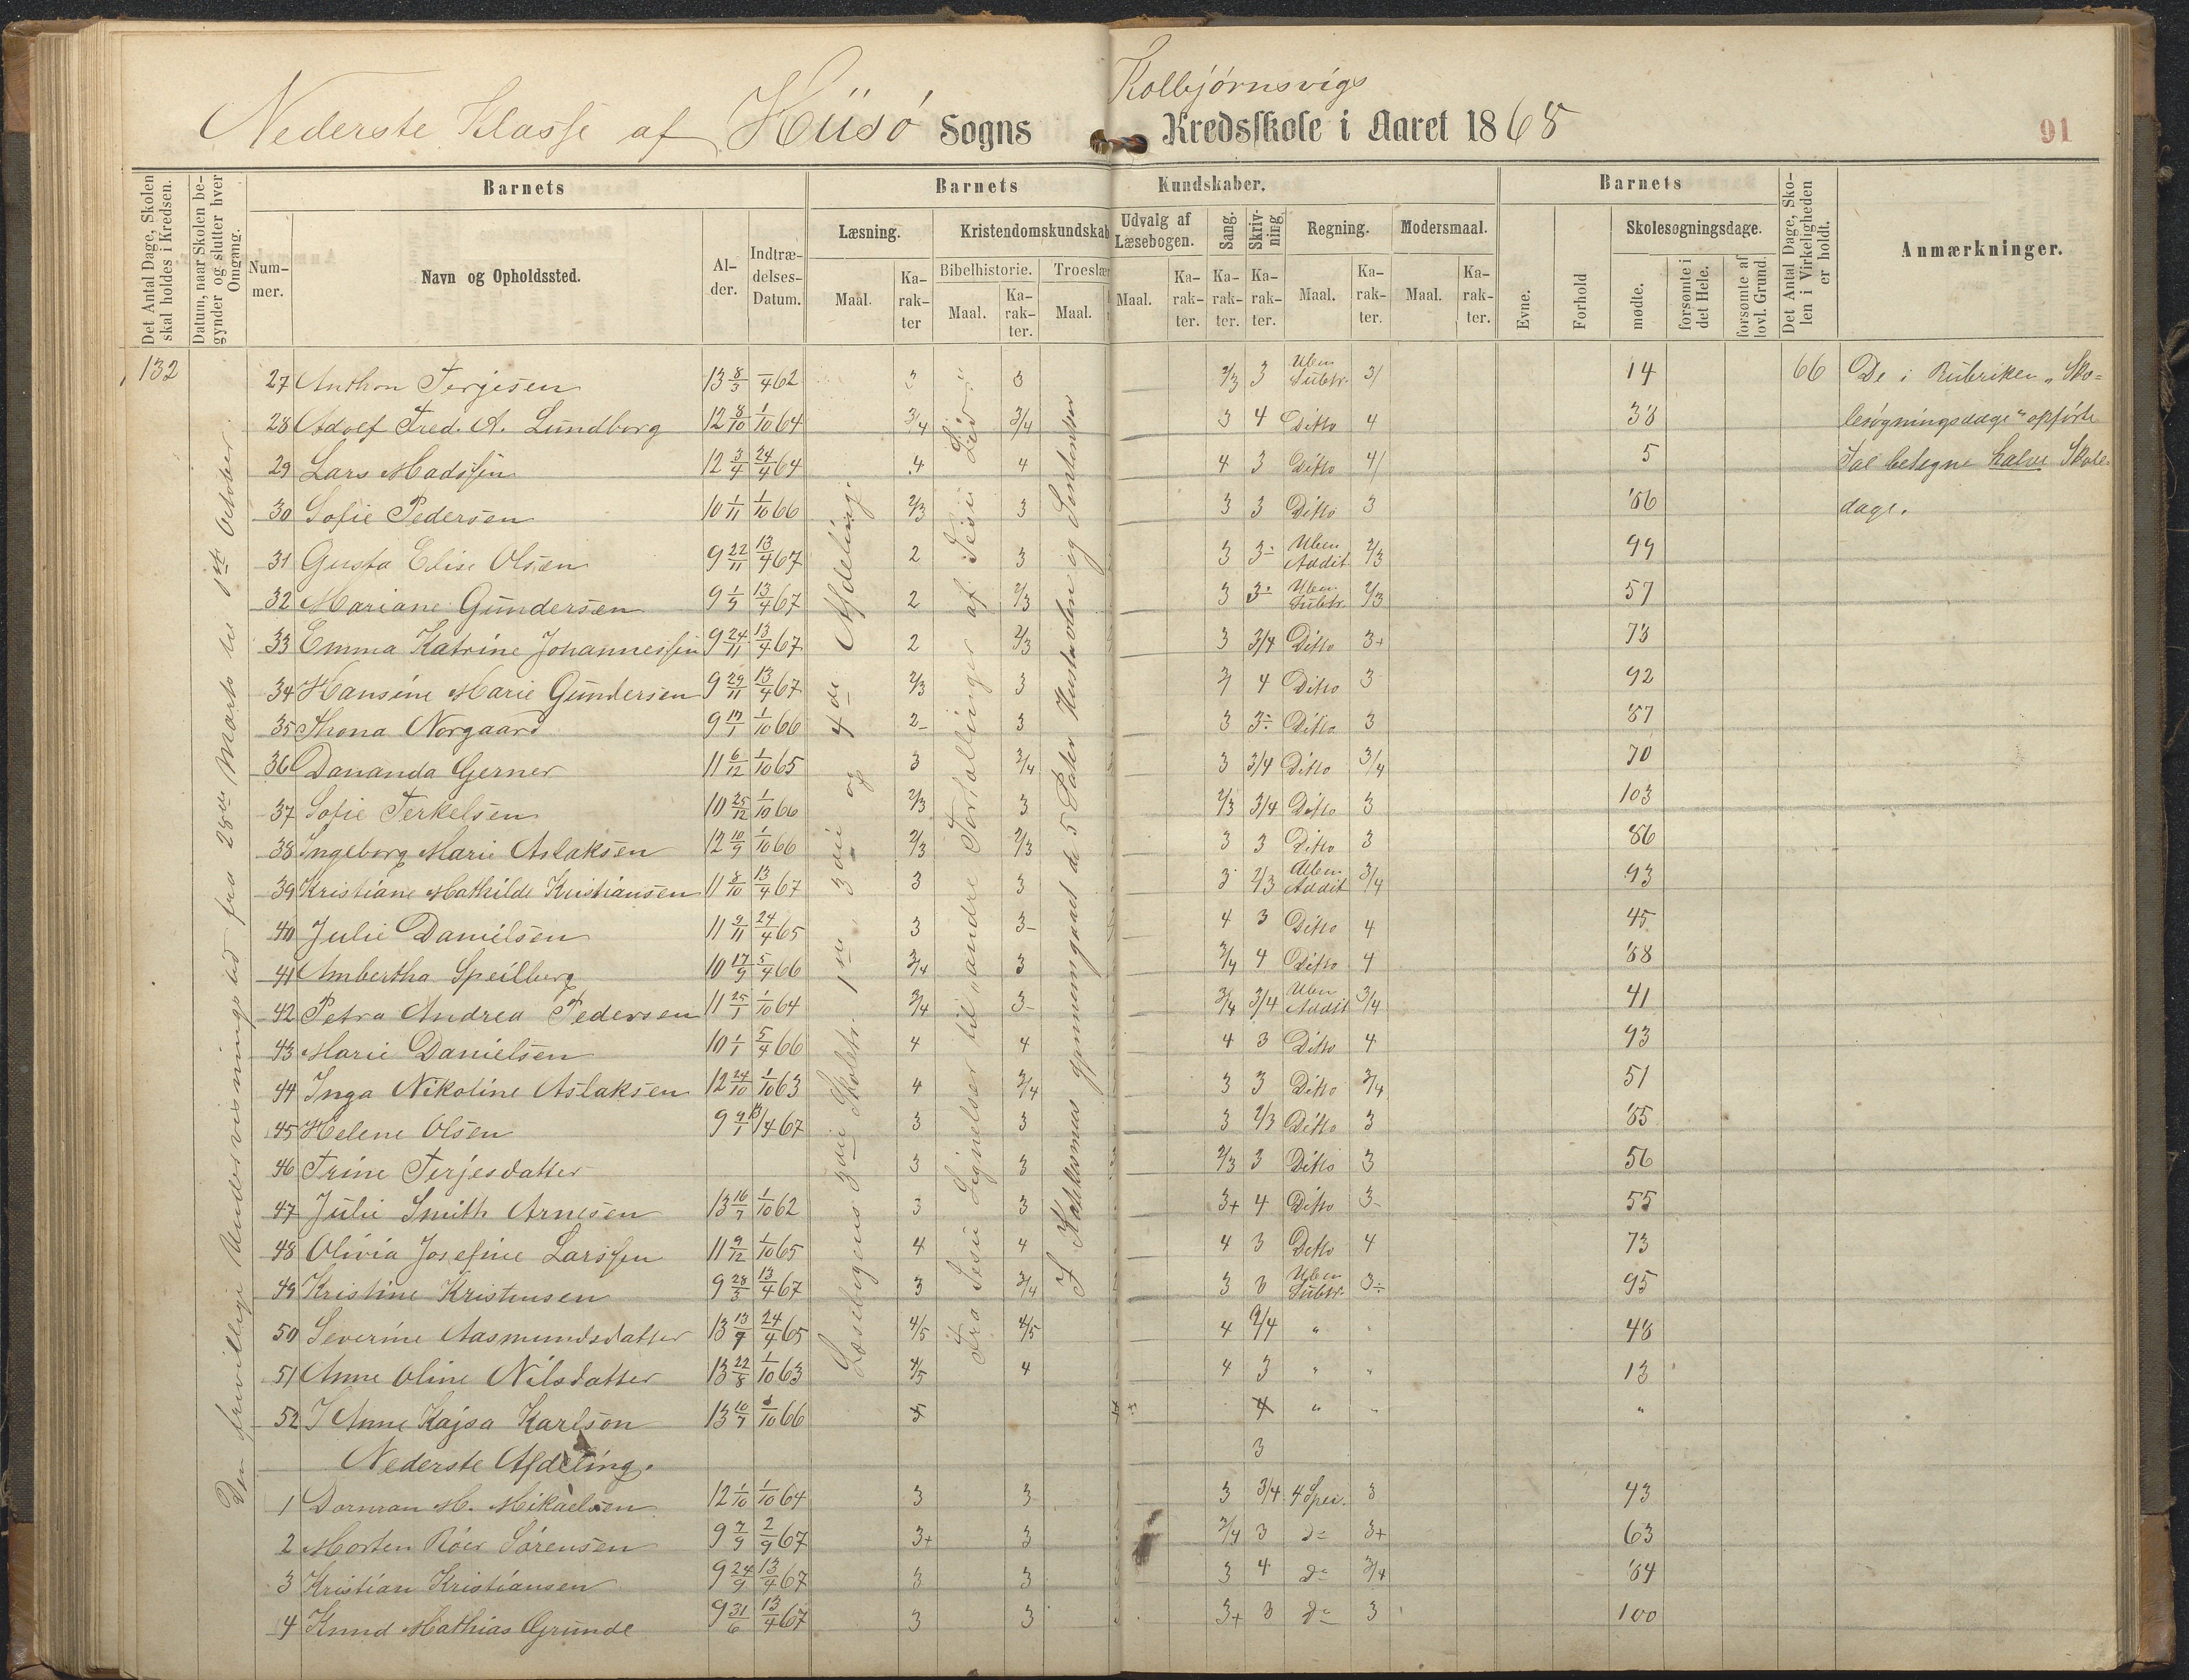 Kolbjørnsvigs
Nederste Klasse af Hiisø Sogns Kredsskole i Aaret 1868
91
Det Antal Dage, Skolen skal holdes i Kredsen.
Datum, naar Skolen begynder og slutter hver Omgang.
Barnets
Nummer.
Navn og Opholdssted.
Alder.
Indtrædelses-Datum.
Barnets Kundskaber.
Læsning.
Maal.
Karakter
Kristendomskundskab
Bibelhistorie.
Maal.
Karakter.
Troeslær
Maal.
Udvalg af Læsebogen.
Maal.
Karakter.
Sang.
Karakter.
Skrivning.
Karakter.
Regning.
Maal.
Karakter.
Modersmaal.
Maal.
Karakter.
Barnets
Evne.
Forhold
Skolesøgningsdage.
mødte.
forsømte i det Hele.
forsømte af lovl. Grund.
Det Antal Dage, Skolen i Virkeligheden er holdt.
Anmærkninger.
132
Den frivillige Undervisningstid fra 28de Marts til 1ste October.
Læsebogens 3die Skoletr. 1ste, 3die og 4de Afdeling.
Fra Jesu Lignelser til "andre Fortællinger af Jesu Liv."
I Katekismus gjennemgaaet de 5 Parter Hustavlen og Sentenser
27 Anthon Terjesen 13 8/3 –/4 62 3 3 2/3 3 Uben Subtr. 3/ 14 66 De i Rubriken "Sko=
28 Adolf Fred. A. Lundborg 12 8/10 1/10 64 3/4 3/4 3 4 Ditto 4 38 lesøgningsdage" opførte
29 Lars Madssen 12 3/4 24/4 64 4 4 4 3 Ditto 4/ 5 Tal betegne halve Skole
30 Sofie Pedersen 10 1/11 1/10 66 2/3 3 3 3 Ditto 3 86 dage.
31 Gusta Elise Olsen 9 22/11 13/4 67 2 3 3 3÷ Uben Addit 2/3 99
32 Mariane Gundersen 9 1/9 13/4 67 2 2/3 3 3÷ Uben Subtr. 2/3 57
33 Emma Katrine Johannessen 9 24/11 13/4 67 2 2/3 3 3/4 Ditto 3+ 78
34 Hansine Marie Gundersen 9 29/11 13/4 67 2/3 3 3/ 4 Ditto 3 92
35 Thona Norgaard 9 17/1 1/10 66 2- 3 3 3÷ Ditto 3 87
36 Dananda Gerner 11 6/12 1/10 65 3 3/4 3 3/4 Ditto 3/4 70
37 Sofie Terkelsen 10 25/12 1/10 66 2/3 3 2/3 3/4 Ditto 3 103
38 Ingeborg Marie Aslaksen 12 10/9 1/10 66 2/3 2/3 3 3 Ditto 3 86
39 Kristiane Mathilde Kristiansen 11 8/10 13/4 67 3 3 3 2/3 Uben Addit 3/4 93
40 Julie Danielsen 11 9/11 24/4 65 3 3- 4 3 Ditto 4 45
41 Ambertha Speilberg 10 17/9 5/4 66 3/4 3 3/4 4 Ditto 4 88
42 Petra Andrea Pedersen 11 25/1 1/10 64 3/4 3- 3/4 3/4 Uben Addit 3/4 41
43 Marie Danielsen 10 1/1 5/4 66 4 4 4 3 Ditto 4 93
44 Inga Nikoline Aslaksen 12 24/10 1/10 63 4 3/4 3 3 Ditto 3/4 51
45 Helene Olsen 9 9/1 13/4 67 3 3 3 2/3 Ditto 3 85
46 Trine Terjesdatter 3 3 2/3 3 Ditto 3 56
47 Julie Smith Arnesen 13 16/7 1/10 62 3 3 3+ 4 Ditto 3- 55
48 Olivia Josefine Larssen 11 9/12 1/10 65 4 4 4 3 Ditto 4 73
49 Kristine Kristensen 9 28/3 13/4 67 3 3/4 3 3 Uben Subtr. 3÷ 95
50 Severine Aasmundsdatter 13 13/9 24/4 65 4/5 4/5 4 3/4 " " 48
51 Anne Oline Nilsdatter 13 22/8 1/10 63 4/5 4 4 3 " " 13
52 I Anne Kajsa Karlson 13 10/7 1/10 66 4 " " "
Nederste Afdeling. 3
1 Dorman M. Mikaelsen 12 1/10 1/10 64 3 3 3 3/4 4 Spec. 3 43
2 Morten Röer Sørensen 9 7/9 2/9 67 3+ 3 3/4 3 do 3+ 63
3 Kristian Kristiansen 9 24/9 13/4 67 3 3 3 4 do 3/4 84
4 Knud Mathias Grunde 9 31/6 13/4 67 3 3 3+ 3 do 3 100